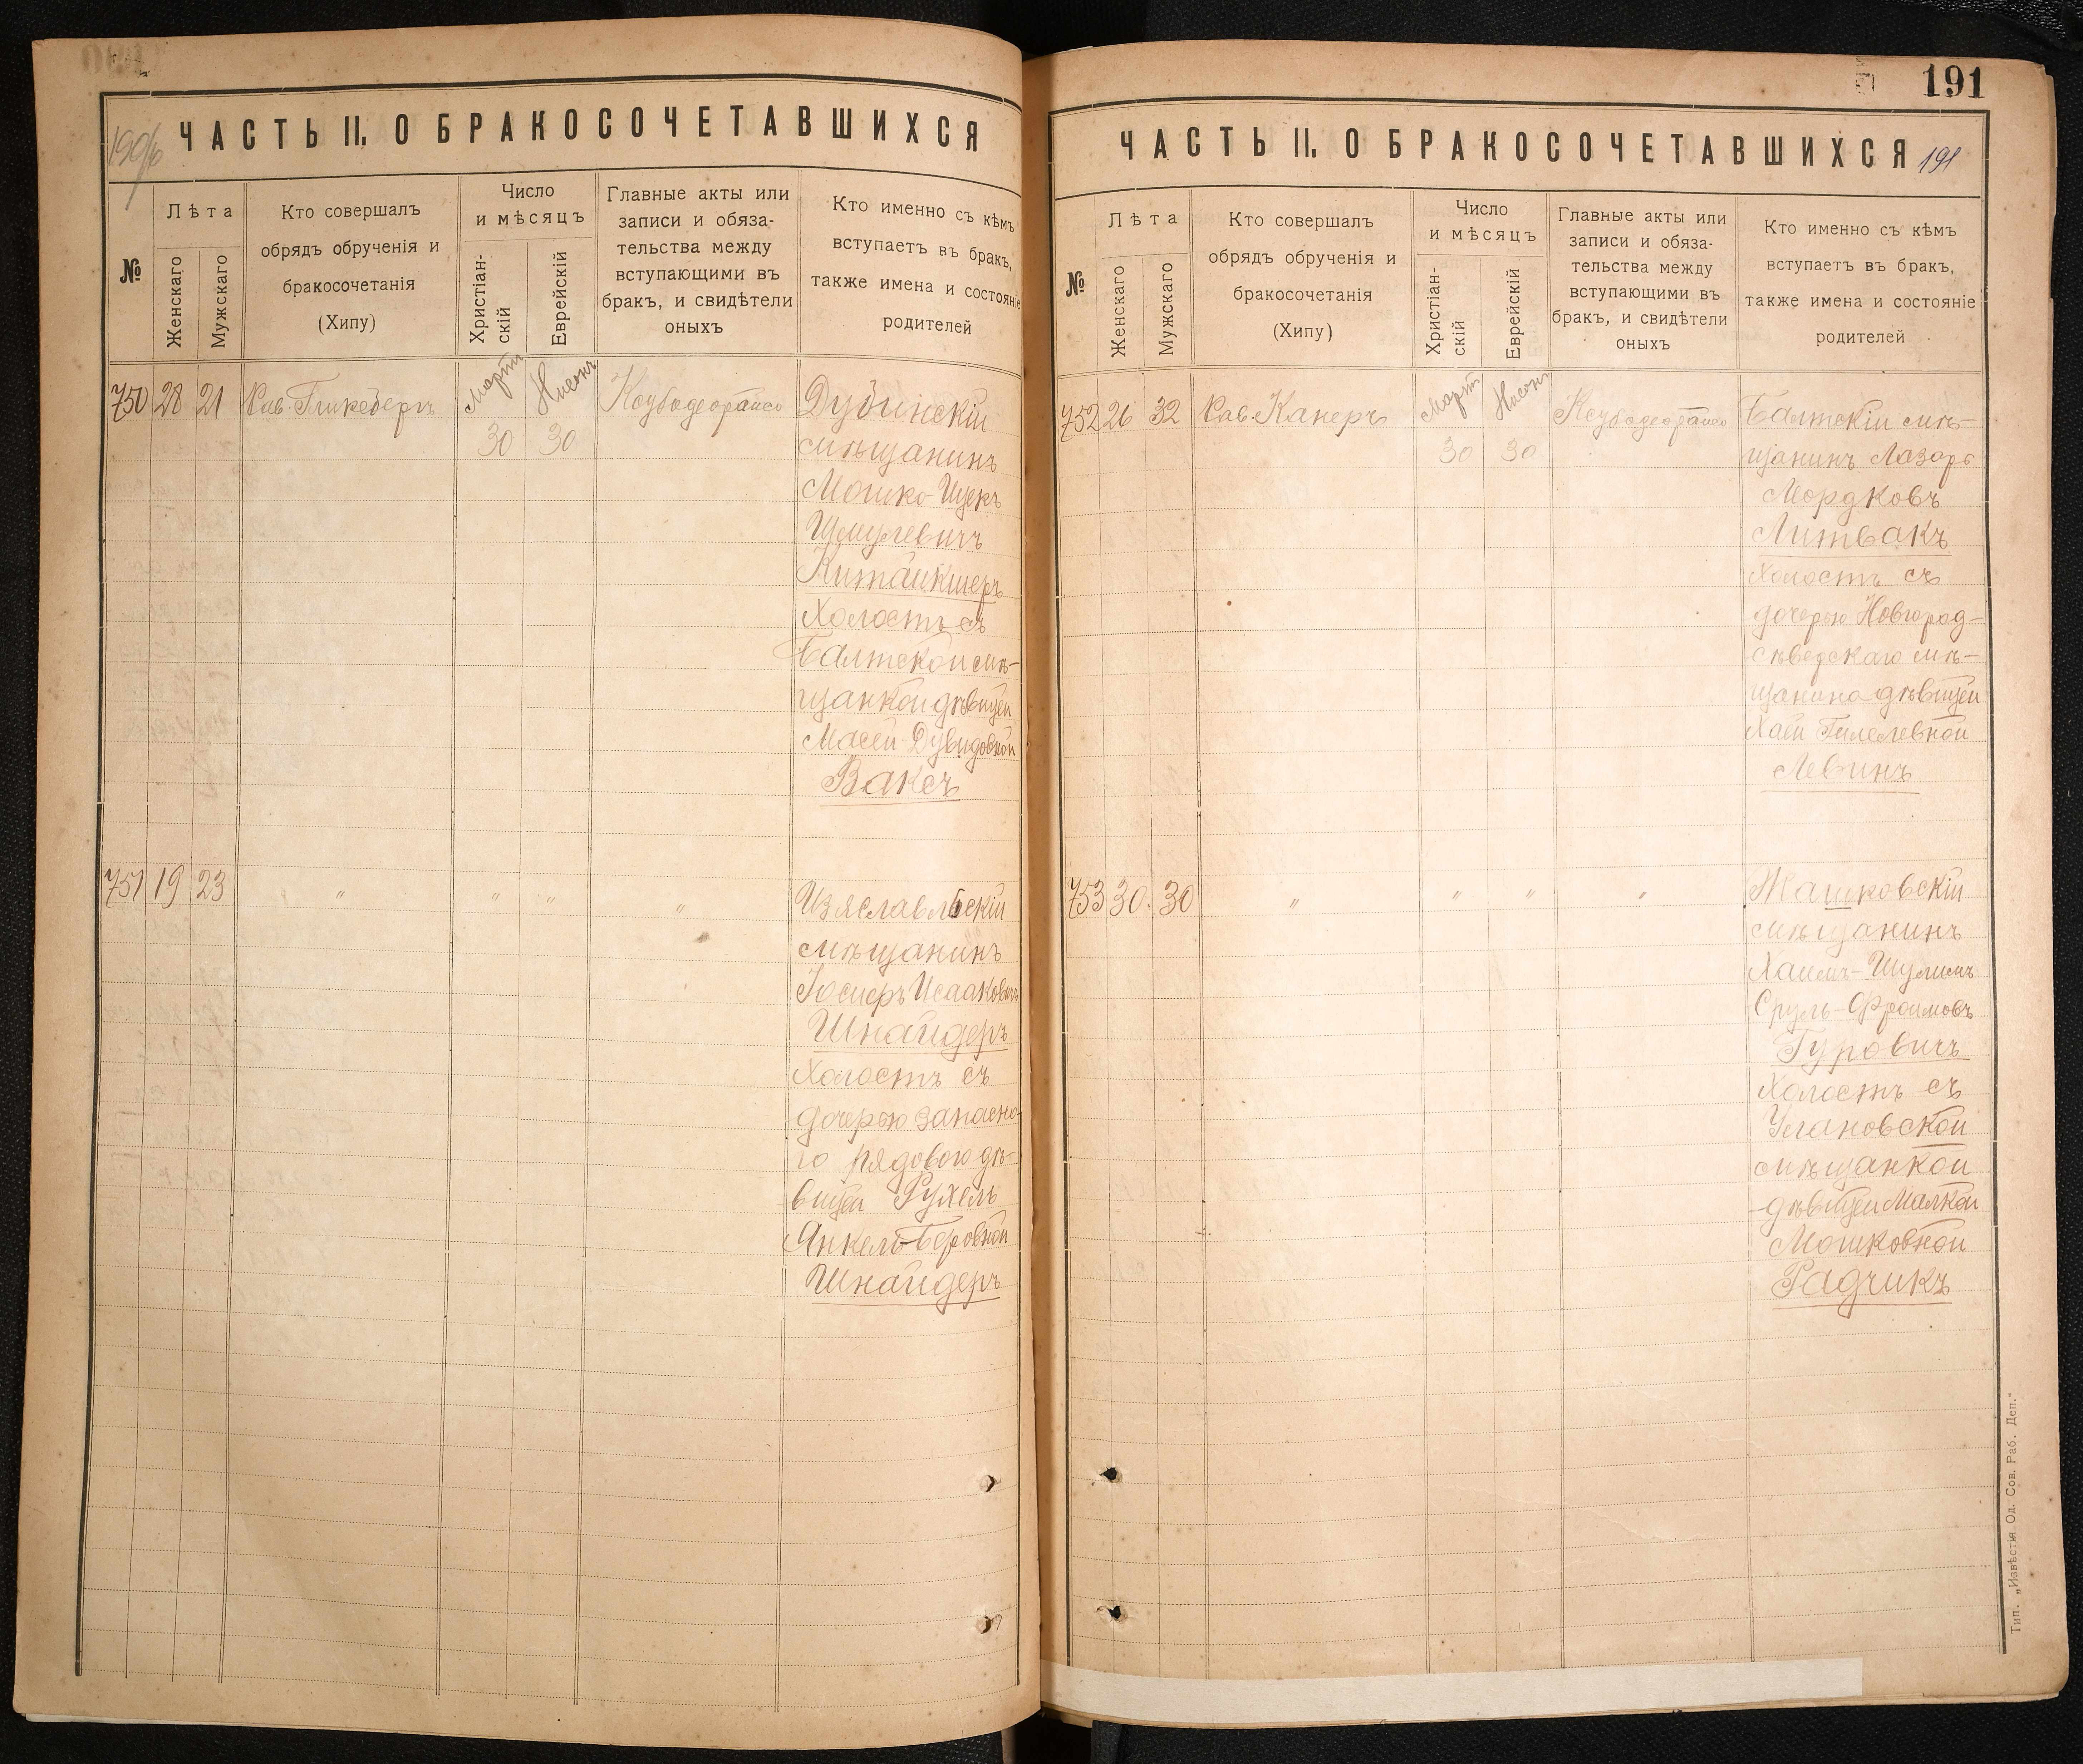 190/б
ЧАСТЬ II. О БРАКОСОЧЕТАВШИХСЯ
№
Лѣта
Женскаго
Мужскаго
Кто совершалъ
обрядъ обрученія и
бракосочетанія
(Хипу)
Число
и мѣсяцъ
Христіан-
скій
Еврейскій
Главные акты или
записи и обяза-
тельства между
вступающими въ
бракъ, и свидѣтели
оныхъ
Кто именно съ кѣмъ
вступаетъ въ бракъ,
также имена и состояніе
родителей
750 28 21 Рав. Гликсбергъ
Мартъ
30
Нисонъ
30
Дубинскій
мѣщанинъ
Мошко-Ицекъ
Шмулевичъ
Китайкшеръ
Холостъ съ
Балтской мѣ-
щанкой дѣвицей
Масей Дувидовной
Ваксъ
751 19 23 " " " "
Изяславльскій
мѣщанинъ
Іосифъ Исааковичъ
Шнайдеръ
Холостъ съ
дочерью запасно-
го рядового дѣ-
вицей Рухель
Янкель-Беровной
Шнайдеръ
191
ЧАСТЬ II. О БРАКОСОЧЕТАВШИХСЯ 191
№
Лѣта
Женскаго
Мужскаго
Кто совершалъ
обрядъ обрученія и
бракосочетанія
(Хипу)
Число
и мѣсяцъ
Христіан-
скій
Еврейскій
Главные акты или
записи и обяза-
тельства между
вступающими въ
бракъ, и свидѣтели
оныхъ
Кто именно съ кѣмъ
вступаетъ въ бракъ,
также имена и состояніе
родителей
752 26 32 Рав. Канеръ
Мартъ
30
Нисонъ
30
Балтскій мѣ-
щанинъ Лазарь
Мордковъ
Литвакъ
Холостъ съ
дочерью Новгород-
сѣверскаго мѣ-
щанина дѣвицей
Хаей Гилелевной
Левинъ
753 30. 30 " " " "
Жашковскій
мѣщанинъ
Хаимъ-Шулимъ
Сруль-Фроимовъ
Гуровичъ
Холостъ съ
Улановской
мѣщанкой
дѣвицей Малкой
Мошковной
Радчикъ
Тип. „Извѣстія Од. Сов. Раб. Деп."